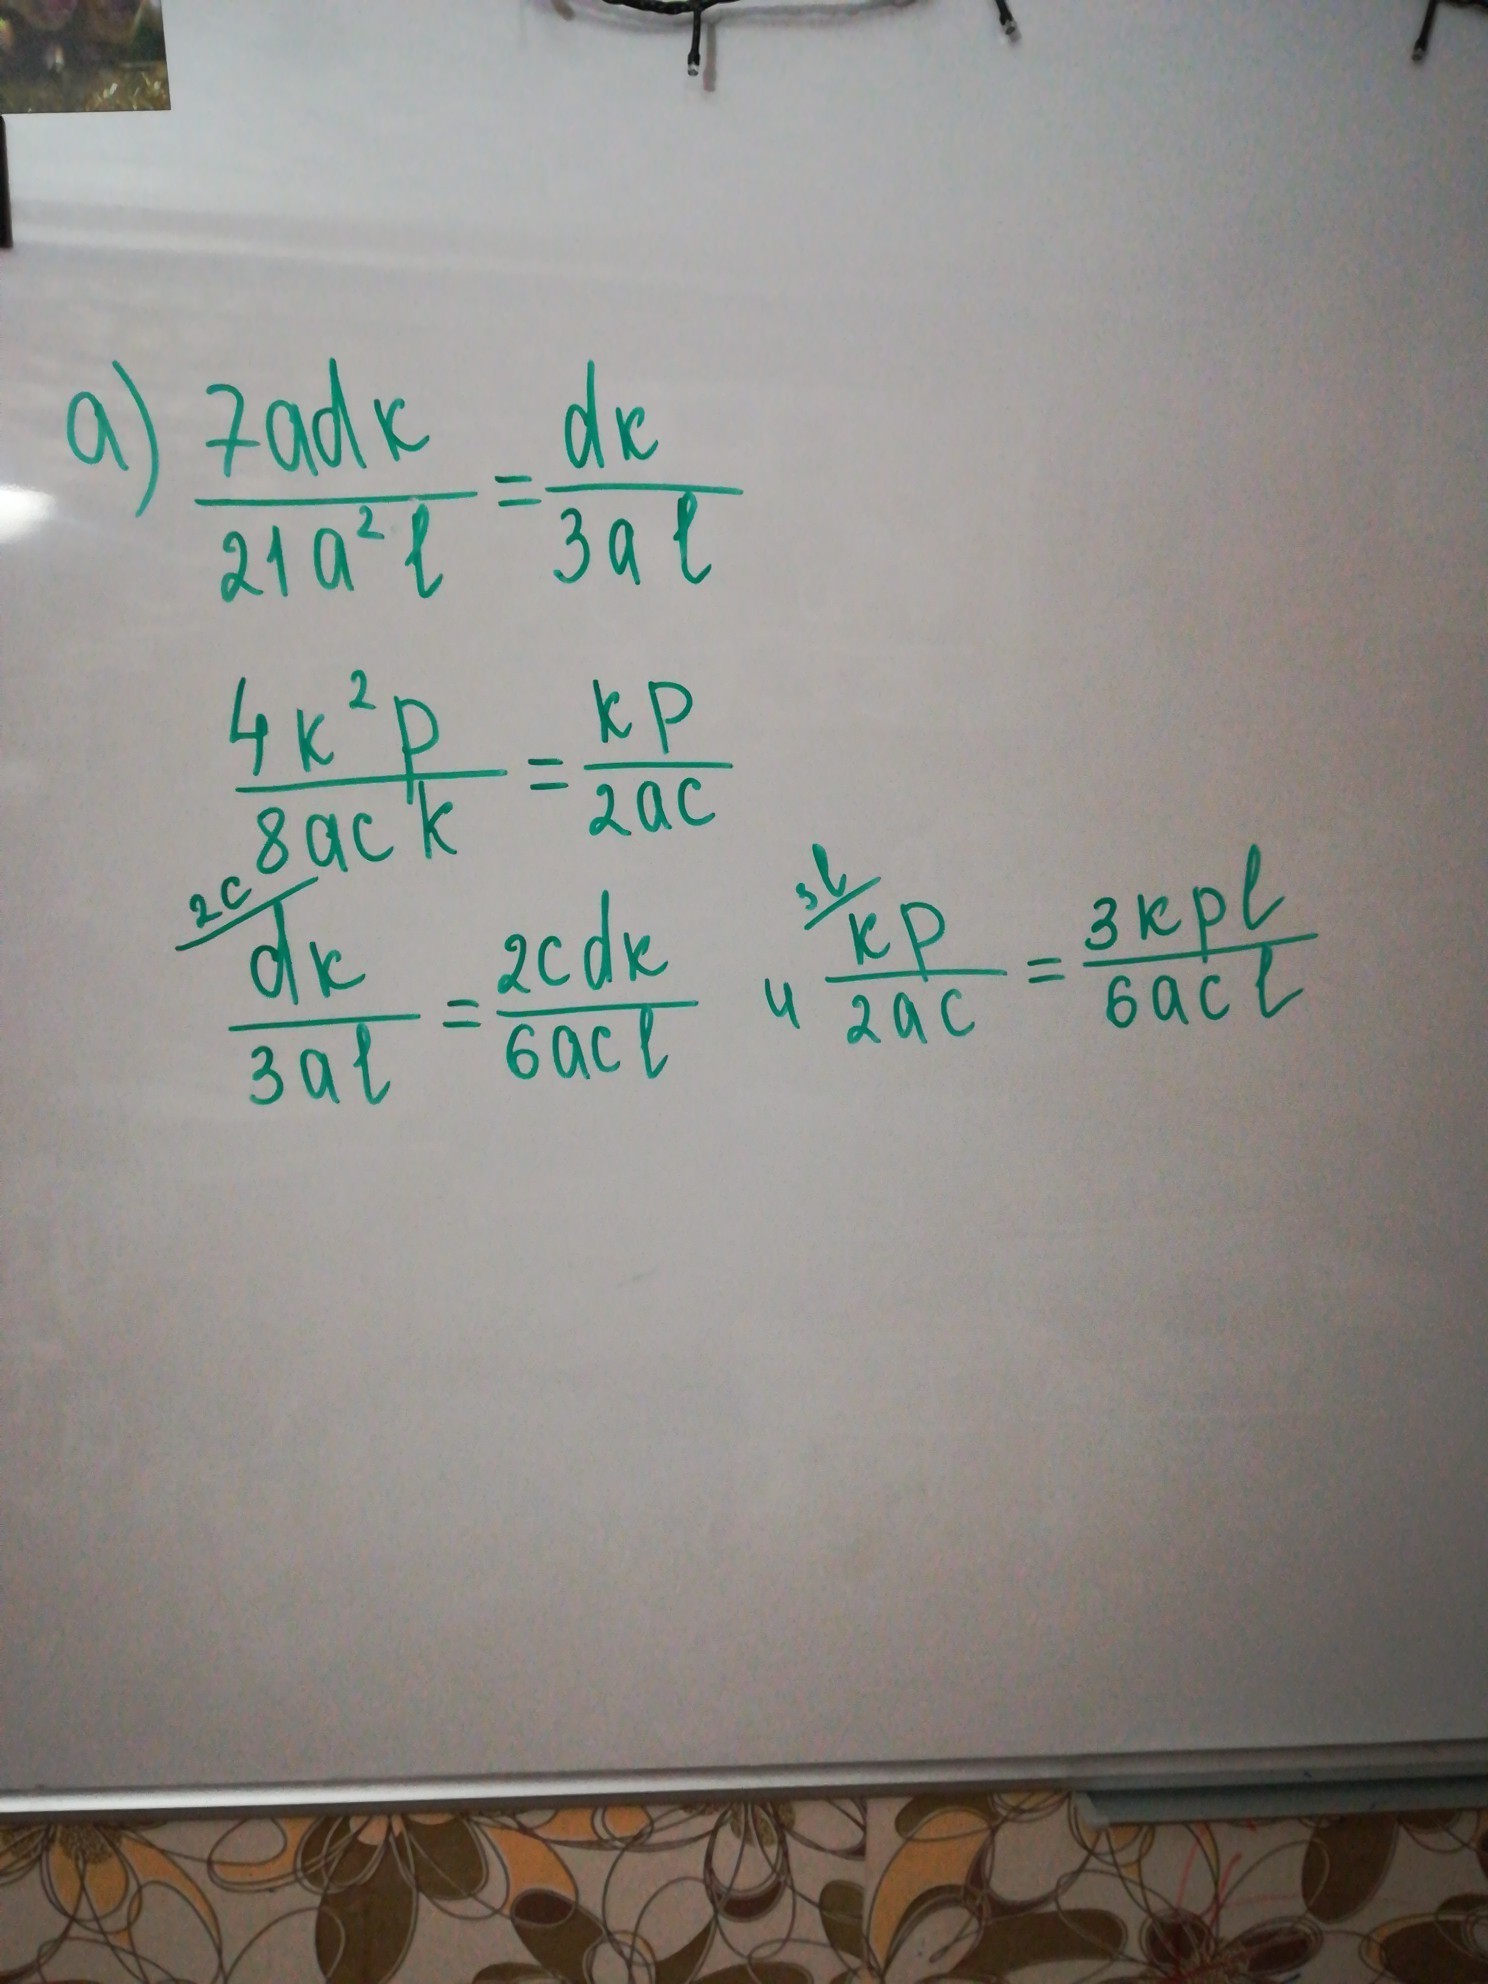 а) 7adk/21a²l = dk/3al
4k²p/8ack = kp/2ac
2c/ dk/3al = 2cdk/6acl и 3l/ kp/2ac = 3kpl/6acl